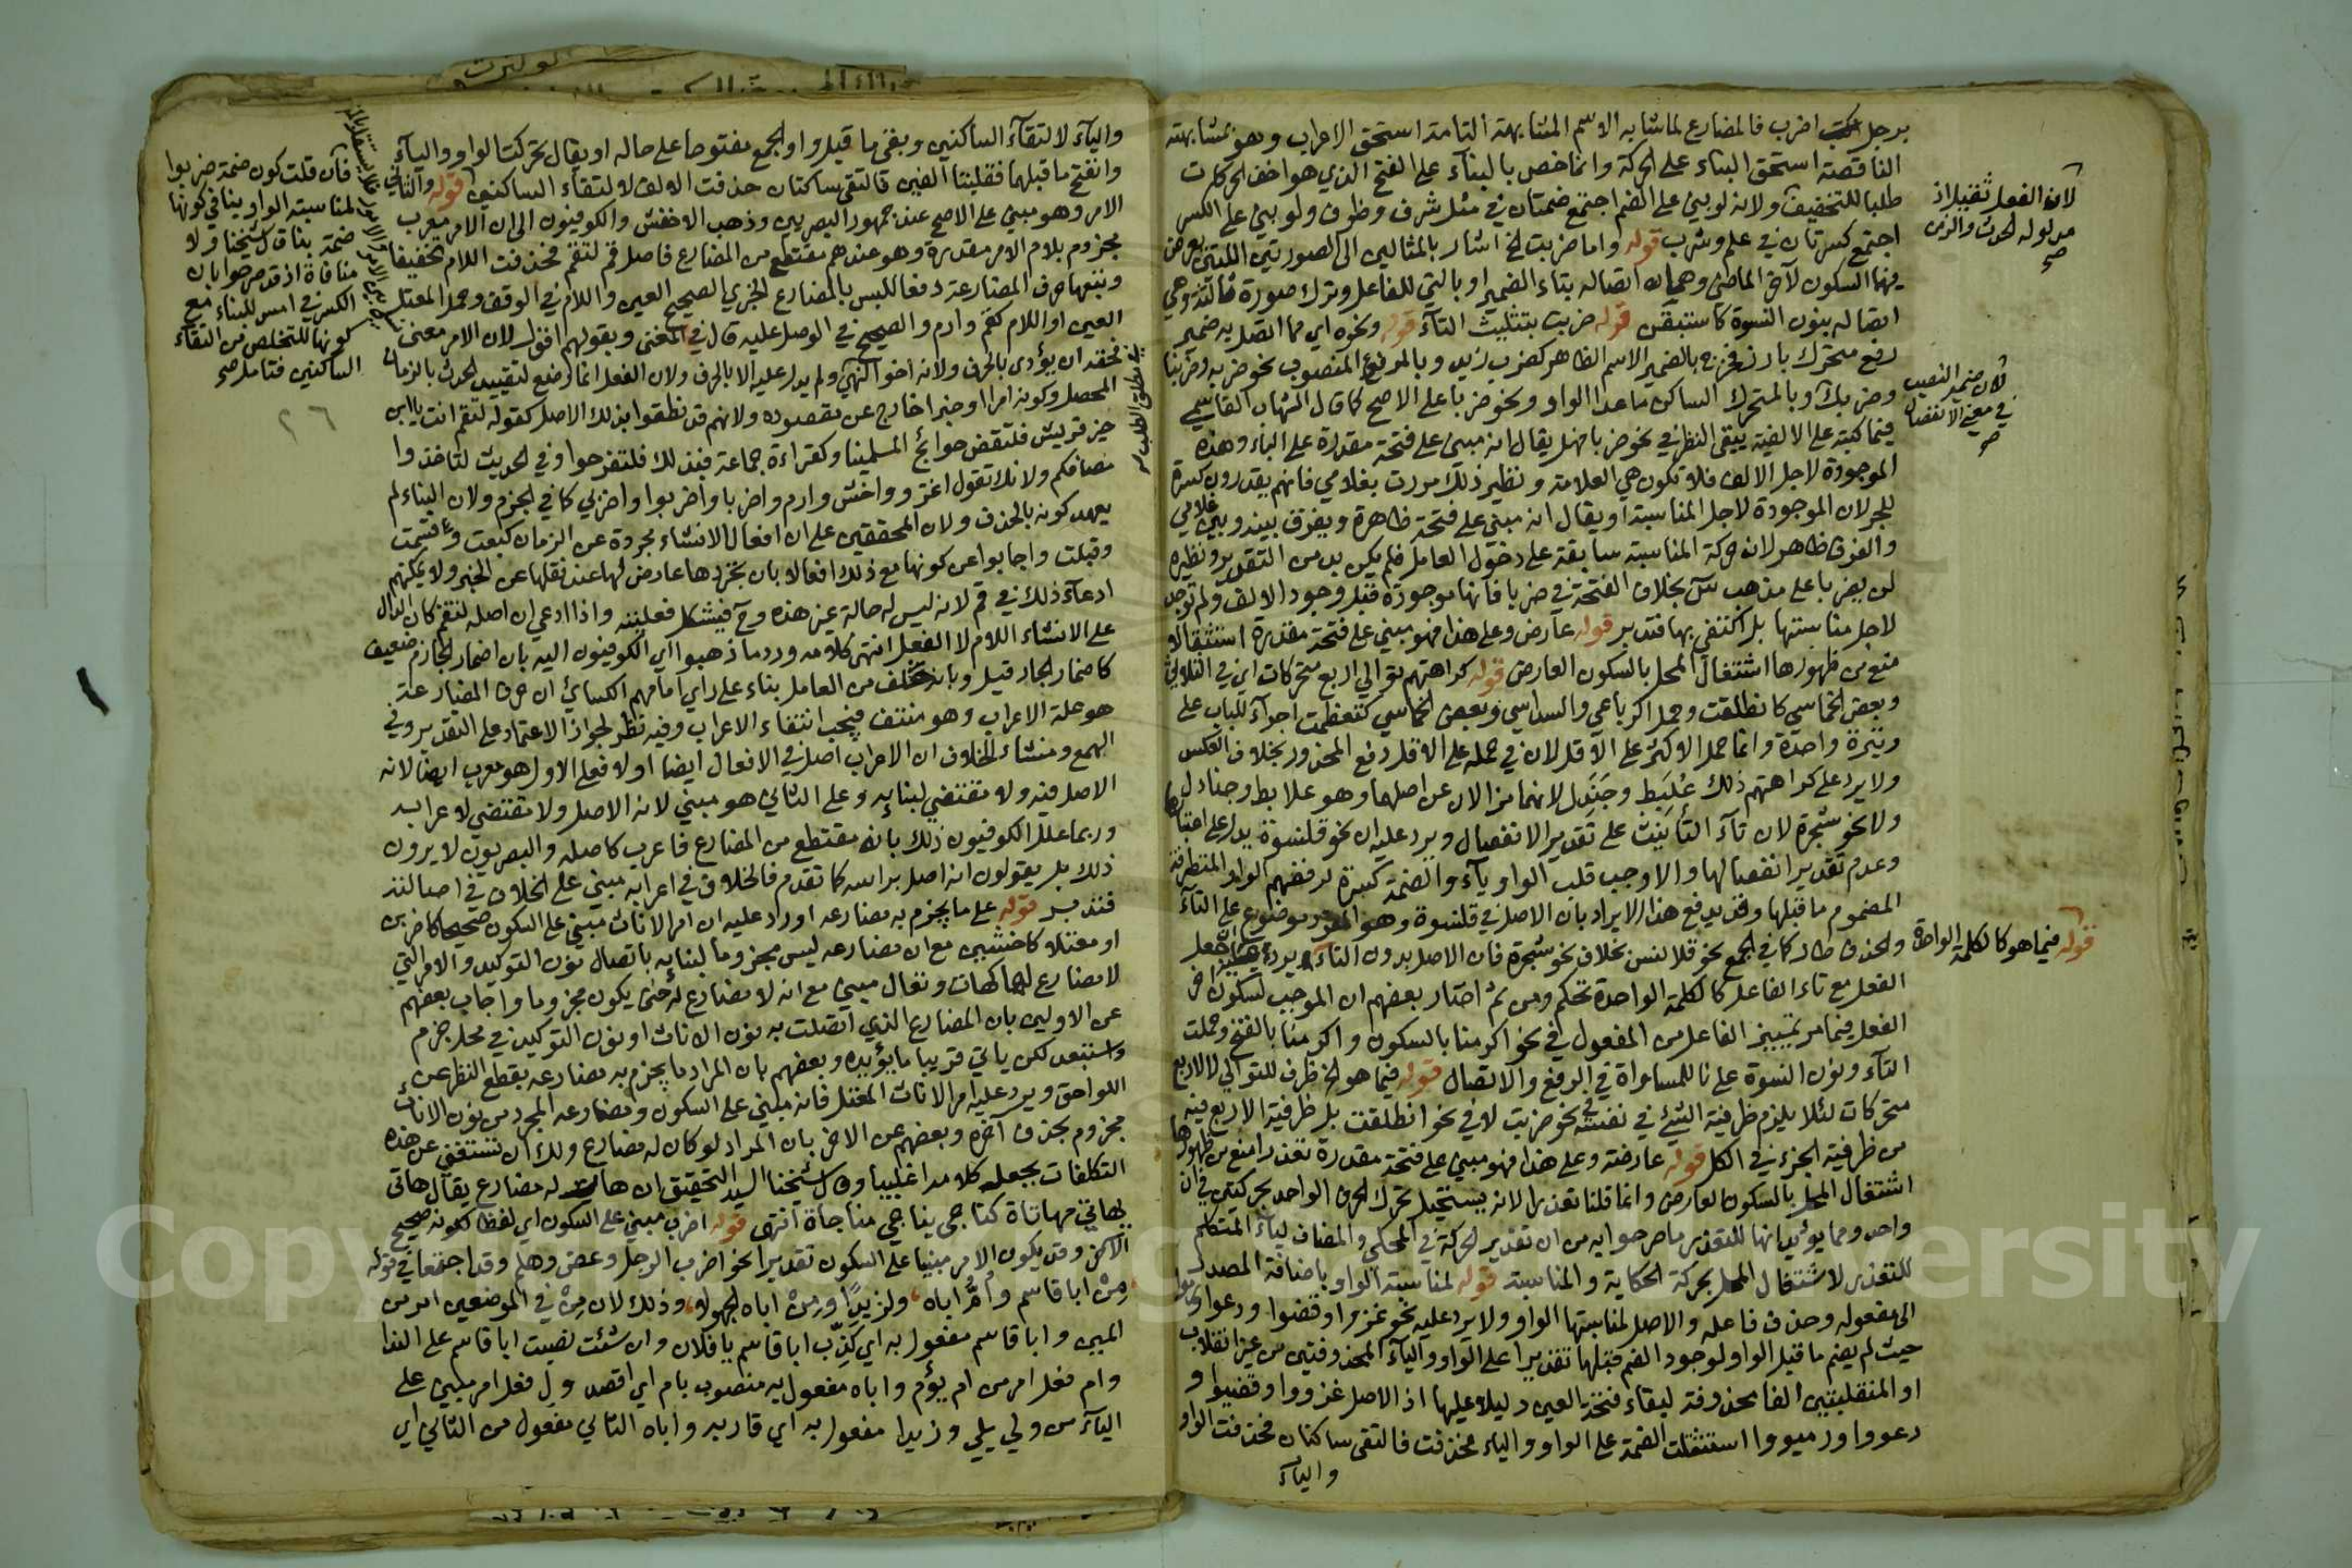 برجل اضرب فالمضارع لما شابه الاسم المشابهة التامة استحق الاعراب وهو بمشابهته
الناقصة استحق البناء على الحركة وانما خص بالبناء على الفتح الذي هو اخف الحركات
طلبا للتخفيف ولانه لو بني على الضم اجتمع ضمتان في مثل شرف وظرف ولو بني على الكسر
اجتمع كسرتان في علم وشرب قوله واما ضربت الخ اشار بالمثالين الى الصورتين اللتين يعرض
فيهما السكون لآخر الماضي وهما اتصاله بتاء الضمير او بالتي للفاعل وترك صورة ثالثة وهي
اتصاله بنون النسوة كاستبقن قوله ضربت بتثليث التآء قوله ونحوه اي مما اتصل به ضمير
رفع متحرك بارز فخرج بالضمير الاسم الظاهر كضرب زيد وبالمرفوع المنصوب نحو ضربه وضربنا
وضربك وبالمتحرك الساكن ما عدا الواو ونحو ضربا على الاصح كما قال الشهاب القاسمي
فيما كتبه على الالفية يبقى النظر في نحو ضربا هل يقال انه مبني على فتحة مقدرة على الباء وهذه
الموجودة لاجل الالف فلا تكون هي العلامة ونظير ذلك مررت بغلامي فانهم يقدرون كسرة
للجر لان الموجودة لاجل المناسبة او يقال انه مبني على فتحة ظاهرة ويفرق بينه وبين غلامي
والفرق ظاهر لان حركة المناسبة سابقة على دخول العامل فلم يكن بد من التقدير ونظيره
لن يضربا على مذهب س بخلاف الفتحة في ضربا فانها موجودة قبل وجود الالف ولم توجد
لاجل مناسبتها بل اكتفي بها فتدبر قوله عارض وعلى هذا فهو مبني على فتحة مقدرة استثقالا
منع من ظهورها اشتغال المحل بالسكون العارض قوله كراهتهم توالي اربع متحركات اي في الثلاثي
وبعض الخماسي كانطلقت وحمل الرباعي والسداسي وبعض الخماسي كتعظمت اجراء للباب على
وتيرة واحدة وانما حمل الاكثر على الاقل لان في حمله على الاقل دفع المحذور بخلاف العكس
ولا يرد على كراهتهم ذلك عُلَبِط وجَنَدِل لانهما مزالان عن اصلهما وهو علابط وجنادل
ولا نحو شجرة لان تآء التأنيث على تقدير الانفصال ويرد عليه ان نحو قلنسوة يدل على اعتبارها
وعدم تقدير انفصالها والا وجب قلب الواو يآء والضمة كسرة لرفضهم الواو المتطرفة
المضموم ما قبلها وقد يدفع هذا الايراد بان الاصل في قلنسوة وهو المفرد موضوع على التآء
والحذف طار كما في الجمع نحو قلانس بخلاف نحو شجرة فان الاصل بدون التآء ويرد جعل
الفعل مع تاء الفاعل كالكلمة الواحدة تحكم ومن ثم اختار بعضهم ان الموجب لسكون آخر
الفعل فيما مر تمييز الفاعل من المفعول في نحو اكرمنا بالسكون واكرمنا بالفتح وحملت
التآء ونون النسوة على نا للمساواة في الرفع والاتصال قوله فيما هو الخ ظرف للتوالي لا للاربع
متحركات لئلا يلزم ظرفية الشيء في نفسه في نحو ضربت لا في نحو انطلقت بل ظرفية الاربع فيه
من ظرفية الجزء في الكل قوله عارضة وعلى هذا فهو مبني على فتحة مقدرة تعذرا منع من ظهورها
اشتغال المحل بالسكون العارض وانما قلنا تعذرا لانه يستحيل تحرك الحرف الواحد بحركتين في آن
واحد ومما يؤيد انها للتعذر ما صرحوا به من ان تقدير الحركة في المحكي والمضاف لياء المتكلم
للتعذر لاشتغال المحل بحركة الحكاية والمناسبة قوله لمناسبة الواو باضافة المصدر
الى مفعوله وحذف فاعله والاصل لمناسبتها الواو ولا يرد عليه نحو غزوا وقضوا ودعوا
حيث لم يضم ما قبل الواو لوجود الضم قبلها تقديرا على الواو والياء المحذوفتين من غير انقلاب
او المنقلبتين الفا محذوفة لبقاء فتحة العين دليلا عليها اذ الاصل غزووا وقضيوا و
دعووا ورميوا استثقلت الضمة على الواو والياء فحذفت فالتقى ساكنان فحذفت الواو
والياء
لان الفعل ثقيل اذ
مدلوله الحدث والزمن
صح
لان ضمير النصب
في معنى الانفصال
صح
قوله فيما هو كالكلمة الواحدة
والياء لالتقاء الساكنين وبقي ما قبل واو الجمع مفتوحا على حاله او يقال تحركت الواو والياء
وانفتح ما قبلهما فقلبتا الفين فالتقى ساكنان حذفت الالف لالتقاء الساكنين قوله والثاني
الامر وهو مبني على الاصح عند جمهور البصريين وذهب الاخفش والكوفيون الى ان الامر معرب
مجزوم بلام الامر مقدرة وهو عندهم مقتطع من المضارع فاصل قم لتقم فحذفت اللام تخفيفا
وتبعها حرف المضارعة دفعا للبس بالمضارع الخبري الصحيح العين واللام في الوقف وحمل المعتل
العين او اللام كقم وارم والصحيح في الوصل عليه قال في المغني وبقولهم اقول لان الامر معنى
فحقه ان يؤدى بالحرف ولانه اخو النهي ولم يدل عليه الا بالحرف ولان الفعل انما وضع لتقييد الحدث بالزمان
المحصل وكونه امرا او خبرا خارج عن مقصوده ولانهم قد نطقوا بذلك الاصل كقوله لتقم انت يا ابن
خير قريش فلتقض حوائج المسلمينا وكقراءة جماعة فبذلك فلتفرحوا وفي الحديث لتاخذوا
مصافكم ولانك تقول اغز واخش وارم واضربا واضربوا واضربي كما في الجزم ولان البناء لم
يعهد كونه بالحذف ولان المحققين على ان افعال الانشاء مجردة عن الزمان كبعت وقسمت
وقبلت واجابوا عن كونها مع ذلك افعالا بان تجردها عارض لها عند نقلها عن الخبر ولا يمكنهم
ادعاء ذلك في قم لانه ليس له حالة غير هذه وح فيشكل فعليته واذا ادعي ان اصله لتقم كان الدال
على الانشاء اللام لا الفعل انتهى كلامه ورد ما ذهبوا اي الكوفيون اليه بان اضمار الجازم ضعيف
كاضمار الجار قيل وبانه من العامل بناء على راي امامهم الكسائي ان حرف المضارعة
هو علة الاعراب وهو منتف فيجب انتفاء الاعراب وفيه نظر لجواز الاعتماد على التقدير وفي
الهمع ومنشاء الخلاف ان الاعراب اصل في الافعال ايضا اولا فعلى الاول هو معرب ايضا لانه
الاصل فيه ولا مقتضي لبنايه وعلى الثاني هو مبني لانه الاصل ولا مقتضي لاعرابه
وربما علل الكوفيون ذلك بانه مقتطع من المضارع فاعرب كاصله والبصريون لا يرون
ذلك بل يقولون انه اصل براسه كما تقدم فالخلاف في اعرابه مبني على الخلاف في اصالته
فتدبر قوله على ما يجزم به مضارعه اورد عليه ان امر الاناث مبني على السكون صحيحا كاضربن
او معتلا كاخشين مع ان مضارعه ليس مجزوما لبنايه باتصال نون التوكيد والامر التي
لا مضارع لها كهات وتعال مبني مع انه لا مضارع له حتى يكون مجزوما واجاب بعضهم
عن الاولين بان المضارع الذي اتصلت به نون الاناث او نون التوكيد في محل جزم
واستبعد لكن ياتي قريبا ما يؤيده وبعضهم بان المراد ما يجزم به مضارعه بقطع النظر عن
اللواحق ويرد عليه امر الاناث المعتل فانه مبني على السكون ومضارعه المجرد من نون الاناث
مجزوم بحذف آخره وبعضهم عن الاخر بان المراد لو كان له مضارع ولك ان تستغني عن هذه
التكلفات بجعله كلاما اغلبيا وقال شيخنا السيد التحقيق ان هات له مضارع يقال هاتى
يهاتي مهاتاة كناجى يناجي مناجاة انتهى قوله اضرب مبني على السكون اي لفظا لكونه صحيح
الآخر وقد يكون الامر مبنيا على السكون تقديرا نحو اضرب الرجل وعض وهلم وقد اجتمعا في قوله
مِنْ ابا قاسم وأُمَّ اباه، ولِ زيدًا ومِنْ اباه الجهول، وذلك لان مِنْ في الموضعين امر من
المين وابا قاسم مفعول به اي كذّب ابا قاسم يا فلان وان شئت نصبت ابا قاسم على الندا
وام فعل امر من ام يؤم واباه مفعول به منصوب بام اي اقصد ولِ فعل امر مبني على
الياء من ولي يلي وزيدا مفعول به اي قاربه واباه الثاني مفعول من الثاني اي
فان قلت كون ضمة ضربوا
لمناسبة الواو ينافي كونها
ضمة بنا قال شيخنا ولا
منافاة اذ قد صرحوا بان
الكسر في امس للبناء مع
كونها للتخلص من التقاء
الساكنين فتامل صح
٢٦